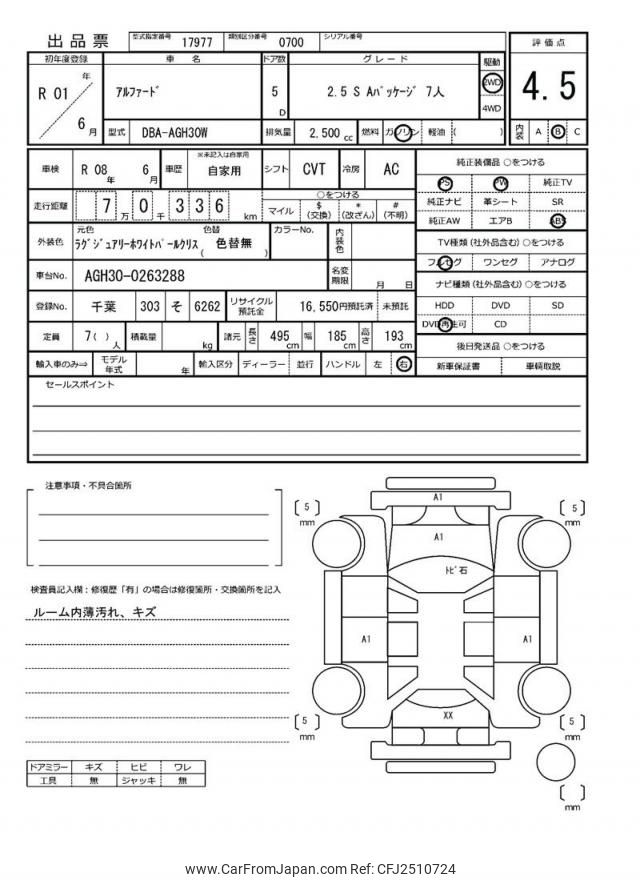 出品票 型式指定番号 17977 類別区分番号 0700 シリアル番号
評価点
4.5
初年度登録 車名 ドア数 グレード 駆動
R 01 年 6 月
アルファード 5 D 2.5 S Aパッケージ 7人 2WD
4WD
型式 DBA-AGH30W 排気量 2,500 cc 燃料 ガソリン 軽油 ( )
内装 A B C
車検 R 08 年 6 月 車歴 ※未記入は自家用 自家用 シフト CVT 冷房 AC
走行距離 7 万 0 千 3 3 6 km
○をつける
マイル $(交換) *(改ざん) #(不明)
外装色 元色 ラグジュアリーホワイトパールクリス 色替 ( 色替無 ) カラーNo. 内装色
車台No. AGH30-0263288 名変期限 月 日
登録No. 千葉 303 そ 6262 リサイクル預託金 16,550円預託済 未預託
定員 7( ) 人 積載量 kg 諸元 長さ 495 cm 幅 185 cm 高さ 193 cm
輸入車のみ⇒ モデル年式 年 輸入区分 ディーラー 並行 ハンドル 左 右
純正装備品 ○をつける
PS PW 純正TV
純正ナビ 革シート SR
純正AW エアB ABS
TV種類(社外品含む) ○をつける
フルセグ ワンセグ アナログ
ナビ種類(社外品含む) ○をつける
HDD DVD SD
DVD再生可 CD
後日発送品 ○をつける
新車保証書 車輌取説
セールスポイント
注意事項・不具合箇所
検査員記入欄：修復歴「有」の場合は修復箇所・交換箇所を記入
ルーム内薄汚れ、キズ
ドアミラー キズ ヒビ ワレ
工具 無 ジャッキ 無
A1
[ 5 ] mm
[ 5 ] mm
A1
トビ石
A1
A1
XX
[ 5 ] mm
[ 5 ] mm
[ ] mm
www.CarFromJapan.com Ref: CFJ2510724